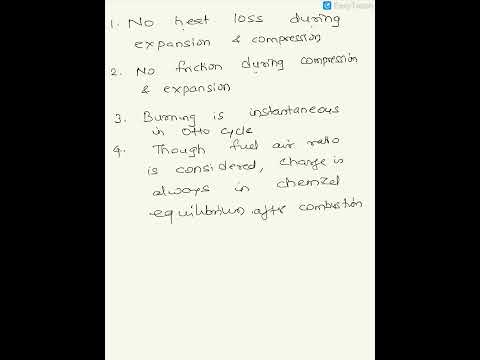 EasyTeach
1. No heat loss during
expansion & compression
2. No friction during compression
& expansion
3. Burning is instantaneous
in Otto cycle
4. Though fuel air ratio
is considered, charge is
always in chemical
equilibrium after combustion